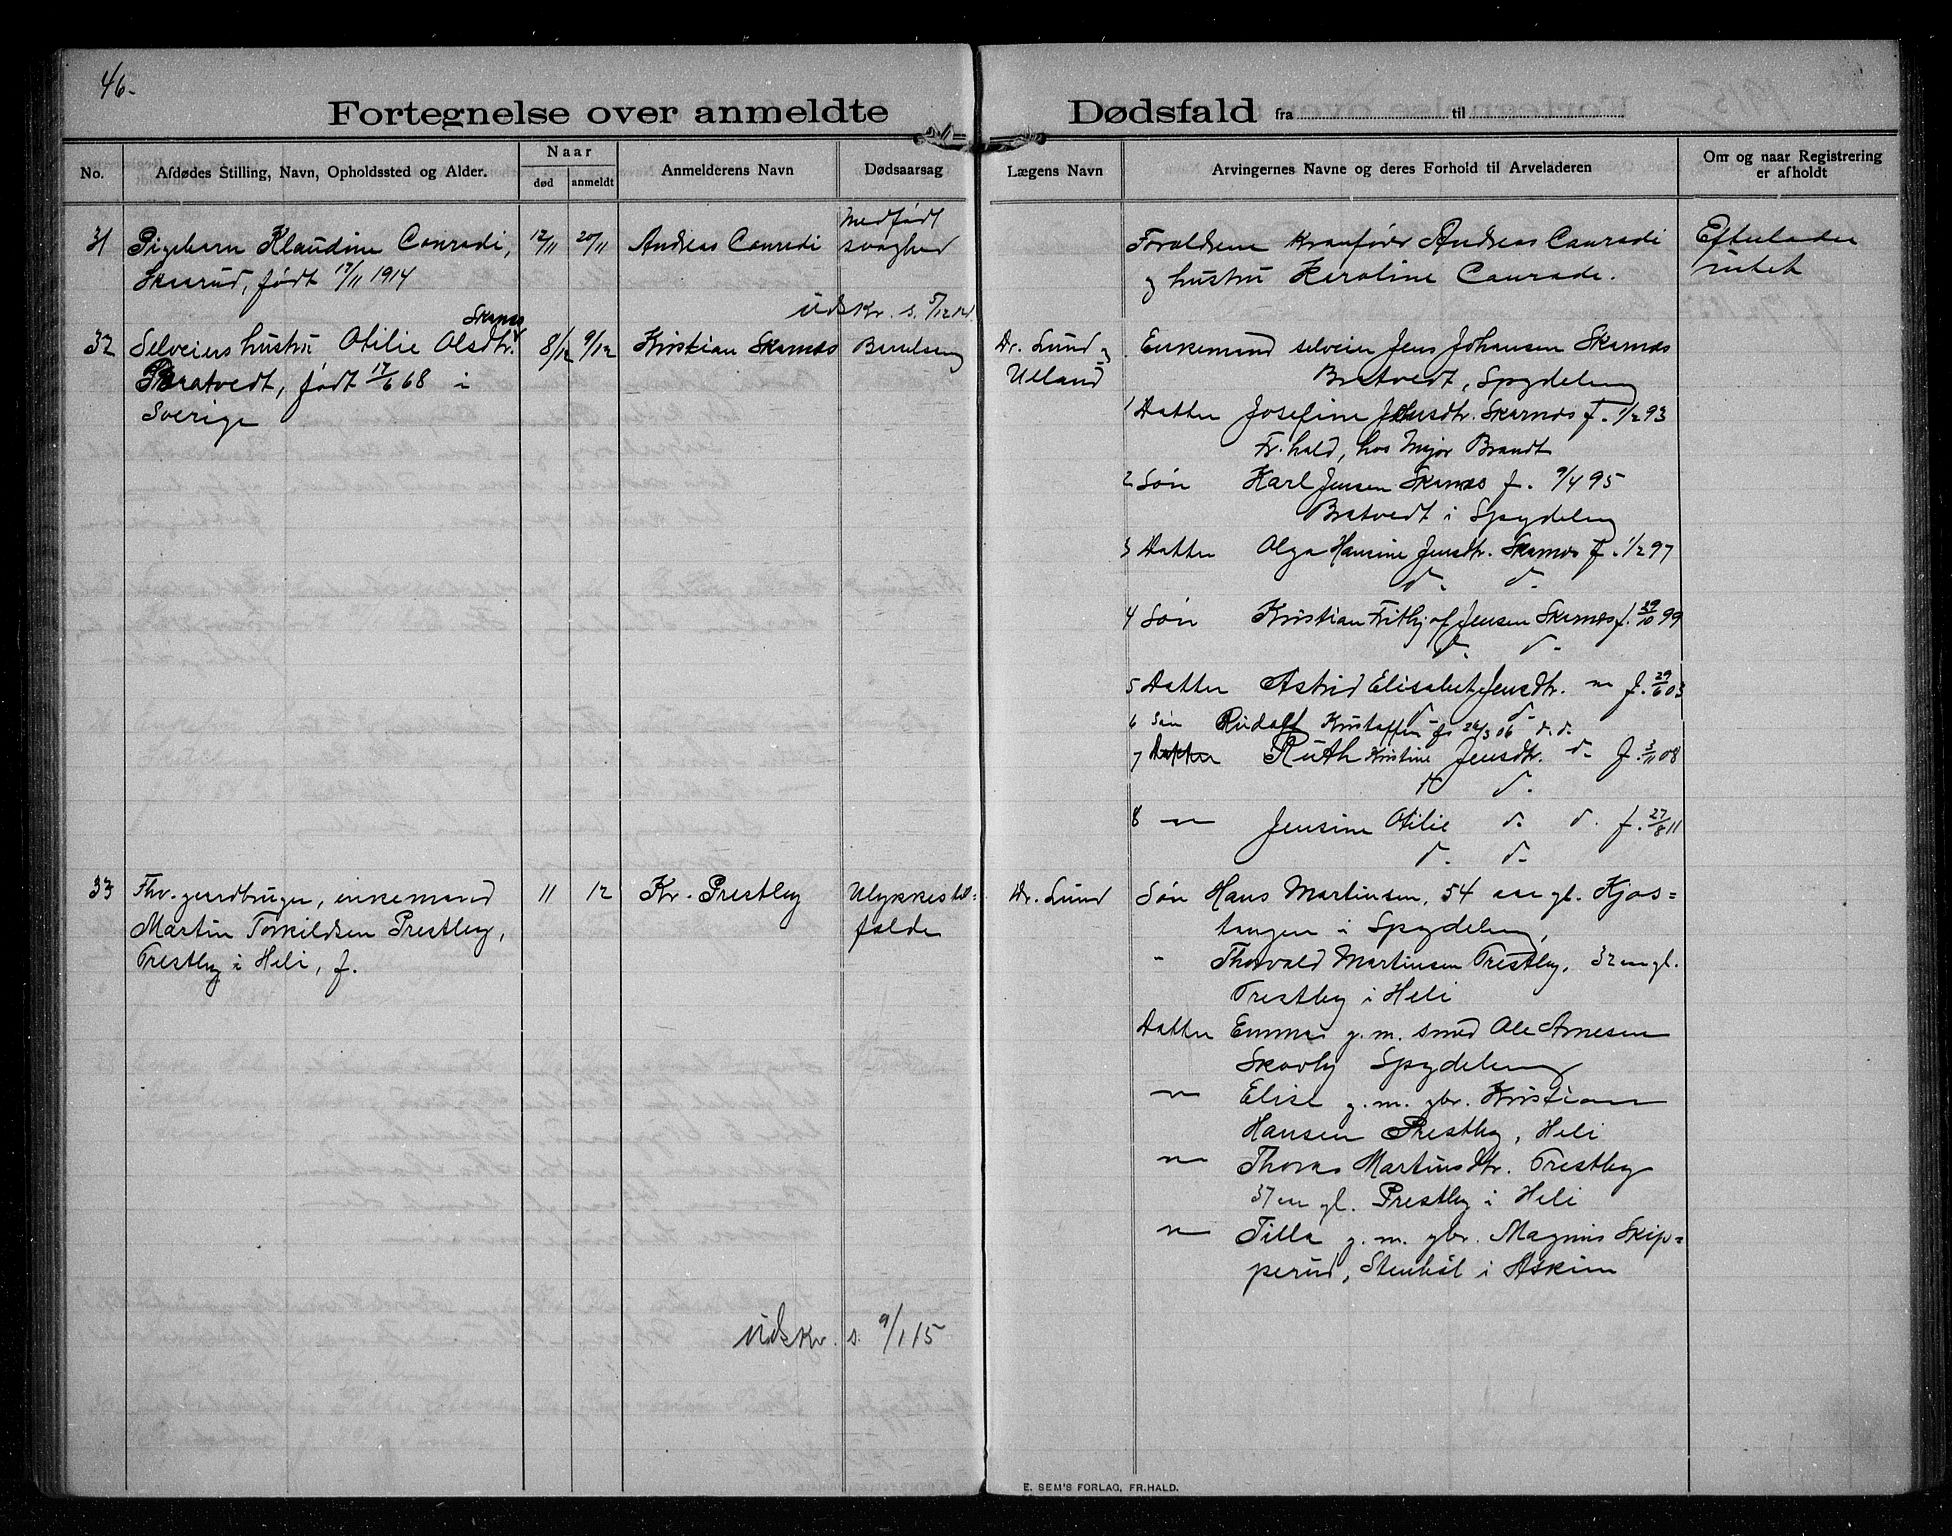 46.
Fortegnelse over anmeldte Dødsfald fra til
No.
Afdødes Stilling, Navn, Opholdssted og Alder.
Naar
død
anmeldt
Anmelderens Navn
Dødsaarsag
Lægens Navn
Arvingernes Navne og deres Forhold til Arveladeren
Om og naar Registrering
er afholdt
31
Pigebarn Klaudine Conradi,
Skaarud, født 17/11 1914
12/11
20/11
Andreas Conradi
Medfødt
svaghed
Forældrene kranfører Andreas Conradi
og hustru Karoline Conradi.
Efterlader
intet
udskr. s. 5/12 14.
32
Selveiers hustru Otilie Olsdtr. Skarnes
Bratvedt, født 17/6 68 i
Sverige
8/12
9/12
Kristian Skarnes
Dr. Lund og
Ulland
Enkemand selveier Jens Johansen Skarnes
Bratvedt, Spydeberg
1 Datter Josefine Jensdtr. Skarnes f. 1/2 93
Fr.hald, hos Major Brandt
2 Søn Karl Jensen Skarnes f. 9/4 95
Bratvedt i Spydeberg
3 Datter Olga Hansine Jensdtr. Skarnes f. 1/2 97
d. d.
4 Søn Kristian Frithjof Jensen Skarnes f. 29/10 99
d. d.
5 Datter Astrid Elisabet Jensdtr. — f. 29/6 03
d. d.
6 Søn Rudolf Kristoffer f. 26/3 06 d. d.
7 Datter Ruth Kristine Jensdtr. d. f. 3/11 08
d. d.
8 — Jensine Otilie d. d. f. 27/8 11
d. d.
33
Fhv. gaardbruger, enkemand
Martin Torkildsen Prestby,
Prestby i Heli, f.
11
12
Kr. Prestby
Ulykkestil-
fælde
Dr. Lund
Søn Hans Martinsen, 54 aar gl. Kjos-
tangen i Spydeberg,
- Thorvald Martinsen Prestby, 32 aar gl.
Prestby i Heli
Datter Emma g. m. smed Ole Arnesen
Skovby Spydeberg
— Elise g. m. gbr. Kristian
Hansen Prestby, Heli
— Thora Martinsdtr. Prestby
37 aar gl. Prestby i Heli
— Tilla g. m. gbr. Magnus Skip-
perud, Stenbøl i Askim
udskr. s. 9/1 15
E. SEM'S FORLAG, FR.HALD.